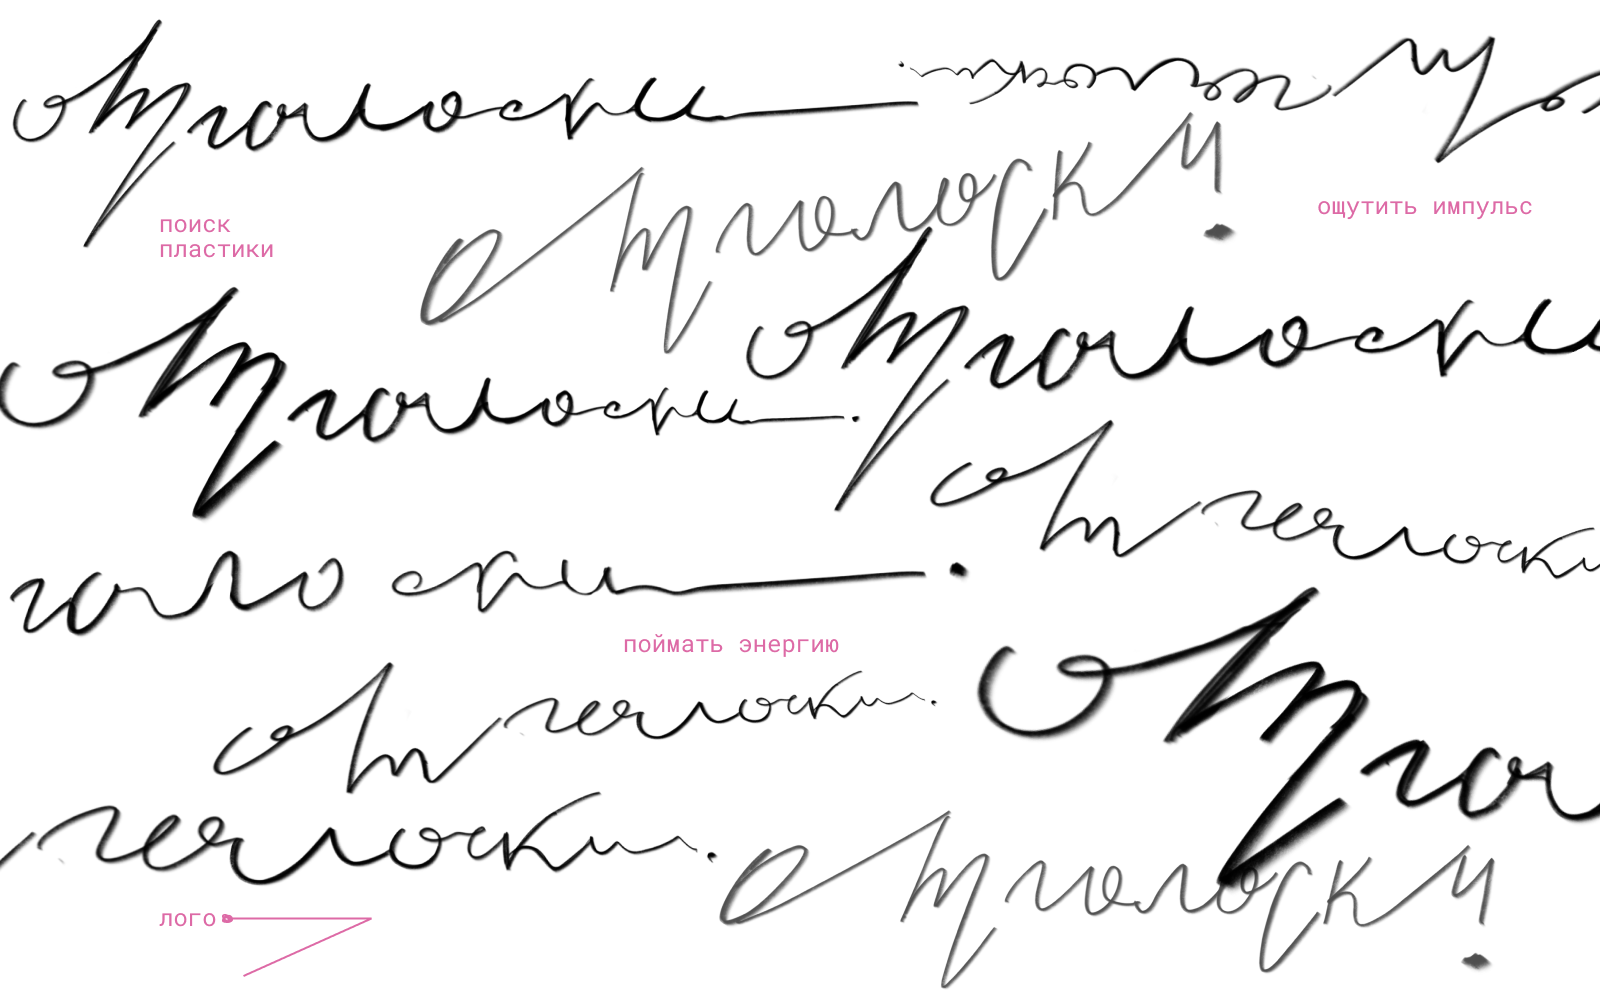 отголоски
отголоски.
отголоски.
поиск
пластики
ощутить импульс
отголоски.
отголоски
отголоски
голоски.
поймать энергию
отголоски.
отго
голоски.
отголоски.
лого